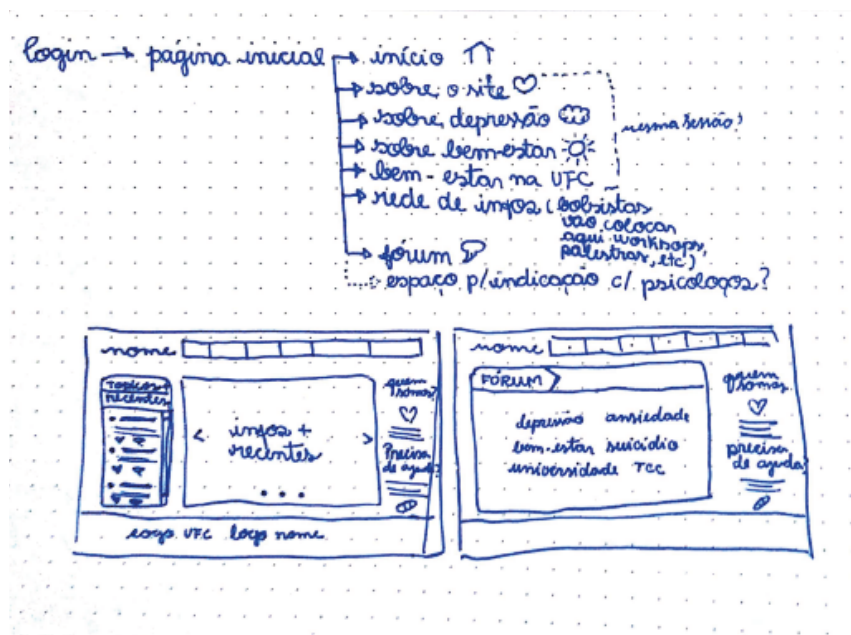 login → página inicial → início
→ sobre o site
→ sobre depressão
→ sobre bem-estar
→ bem-estar na UFC
→ rede de infos (bolsistas
vão colocar
aqui worksops,
palestras, etc)
→ fórum
espaço p/ indicação c/ psicólogos?
mesma sessão?
nome
Tópicos +
recentes
< infos + >
recentes
quem
somos?
Precisa
de ajuda?
logo UFC logo nome
nome
FÓRUM
depressão ansiedade
bem-estar suicídio
universidade TCC
quem
somos
precisa
de ajuda?